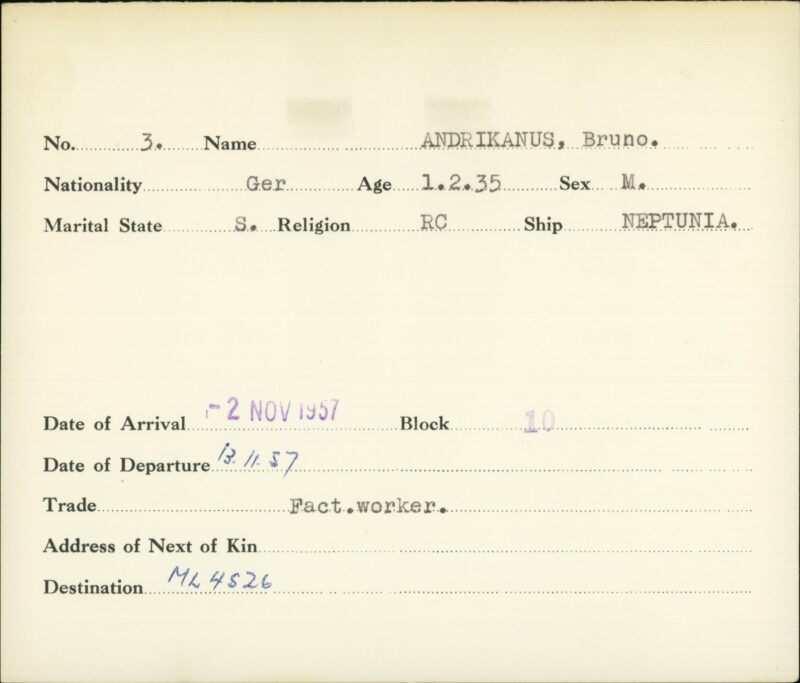 No. 3. Name ANDRIKANUS, Bruno.
Nationality Ger Age 1.2.35 Sex M.
Marital State S. Religion RC Ship NEPTUNIA.
Date of Arrival -2 NOV 1957 Block 10
Date of Departure 13.11.57
Trade Fact.worker.
Address of Next of Kin
Destination ML 4526